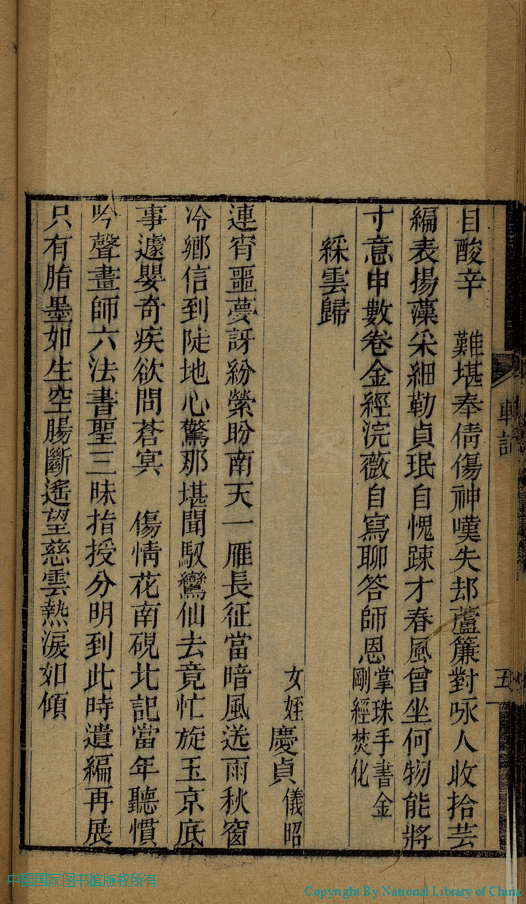 目酸辛　難堪奉倩傷神嘆失却蘆簾對咏人收拾芸
編表揚藻采細勒貞珉自愧踈才春風曾坐何物能將
寸意申數卷金經浣薇自寫聊答師恩掌珠手書金剛經焚化
綵雲歸
女姪慶貞儀昭
連宵噩夢訝紛縈盼南天一雁長征當暗風送雨秋窗
冷鄉信到陡地心驚那堪聞馭鸞仙去竟忙旋玉京底
事遽嬰奇疾欲問蒼冥　傷情花南硯北記當年聽慣
吟聲畫師六法書聖三昧指授分明到此時遺編再展
只有脂墨如生空腸斷遙望慈雲熱淚如傾
輓詞
五
中国国家图书馆版权所有
Copyright By National Library of China